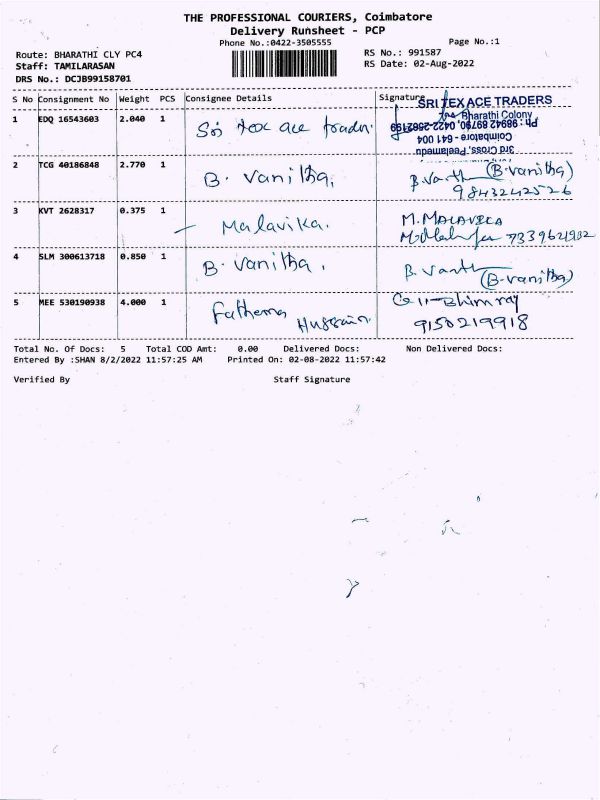 THE PROFESSIONAL COURIERS, Coimbatore
Delivery Runsheet - PCP
Phone No.:0422-3505555 Page No.:1
Route: BHARATHI CLY PC4 RS No.: 991587
Staff: TAMILARASAN RS Date: 02-Aug-2022
DRS No.: DCJB99158701
S No Consignment No Weight PCS Consignee Details Signature
SRI TEX ACE TRADERS
1 EDQ 16543603 2.040 1 Sri tex ace trader.
Bharathi Colony
3rd Cross, Peelamedu
Coimbatore - 641 004
2 TCG 40186848 2.770 1 B. Vanitha, (B.vanitha)
9843242526
3 KVT 2628317 0.375 1 Malavika. M. MALAVIKA
4 SLM 300613718 0.850 1 B. Vanitha. (B.vanitha)
5 MEE 530190938 4.000 1 Fathema Hussain.
9150219918
Total No. Of Docs: 5 Total COD Amt: 0.00 Delivered Docs: Non Delivered Docs:
Entered By :SHAN 8/2/2022 11:57:25 AM Printed On: 02-08-2022 11:57:42
Verified By Staff Signature